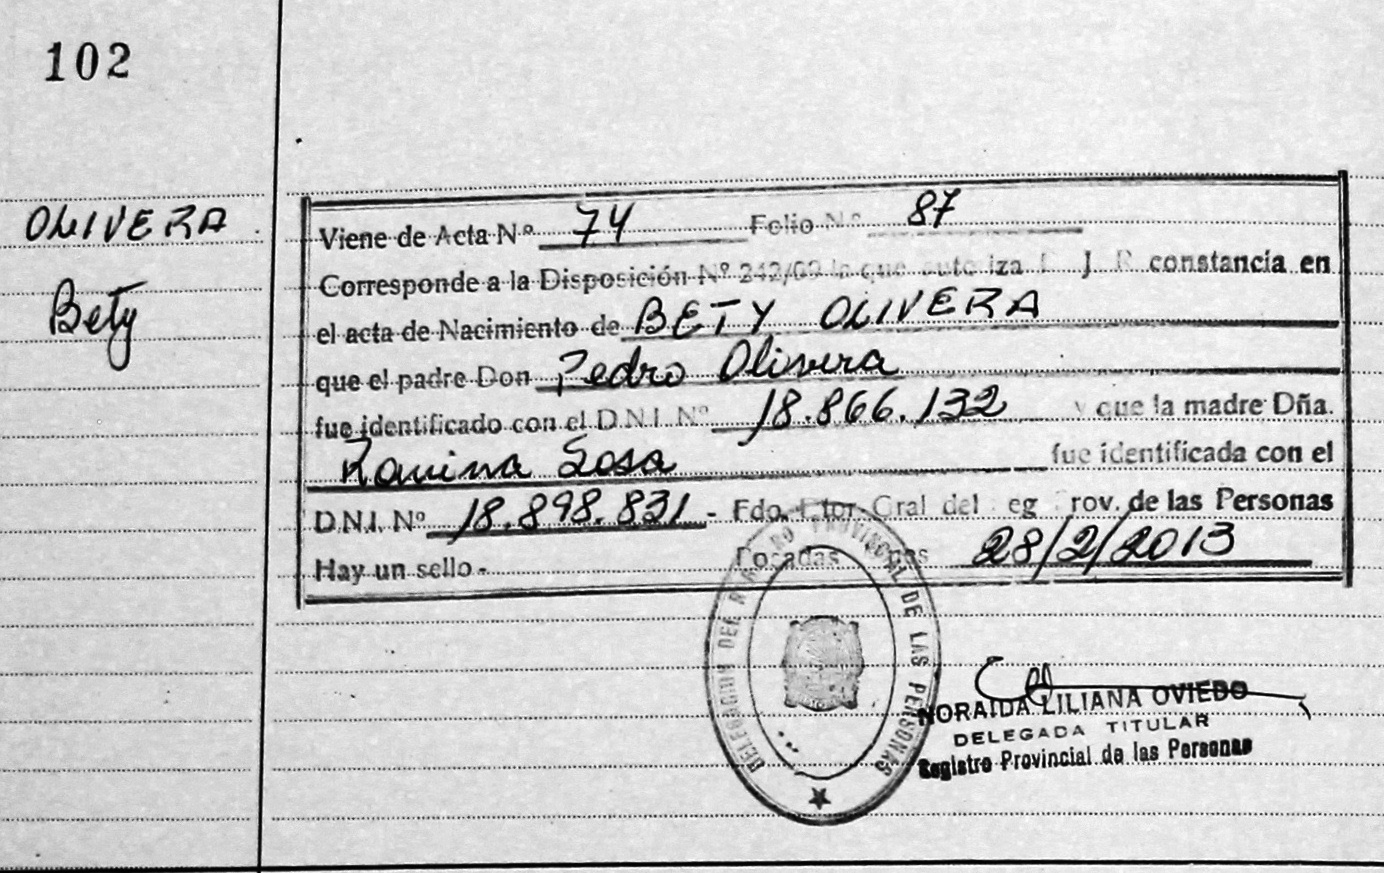 102
OLIVERA
Bety
Viene de Acta Nº 74 Folio Nº 87
Corresponde a la Disposición Nº 242/09 la que autoriza J. R. constancia en
el acta de Nacimiento de BETY OLIVERA
que el padre Don Pedro Olivera
fue identificado con el D.N.I. Nº 18.866.132 y que la madre Dña.
Romina Sosa fue identificada con el
D.N.I. Nº 18.898.831 - Fdo. Gral del eg rov. de las Personas
Hay un sello.- Pocadas 28/2/2013
DELEGACION DEL PROVINCIAL DE LAS PERSONAS
NORAIDA LILIANA OVIEDO
DELEGADA TITULAR
Registro Provincial de las Personas